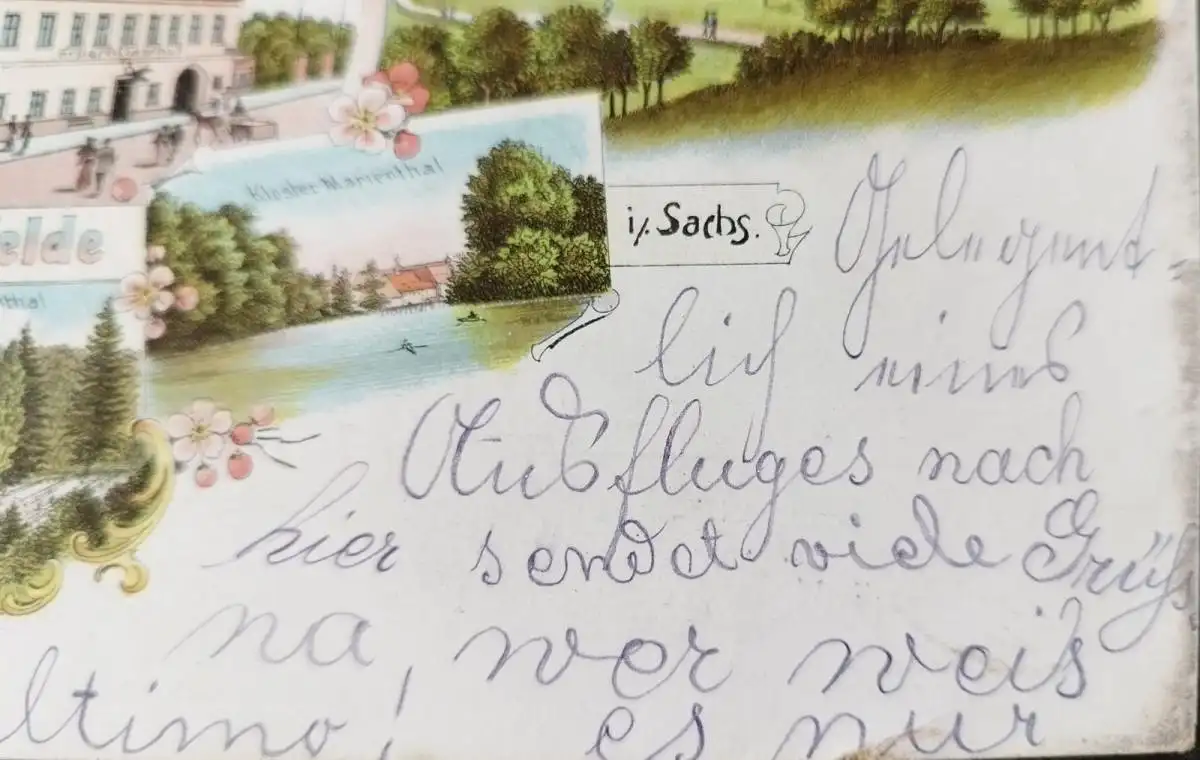 Kloster Marienthal
elde
nthal
i/. Sachs.
Gelegent-
lich eines
Ausfluges nach
hier sendet viele Grüß
na, wer weis
ltimo! es nur